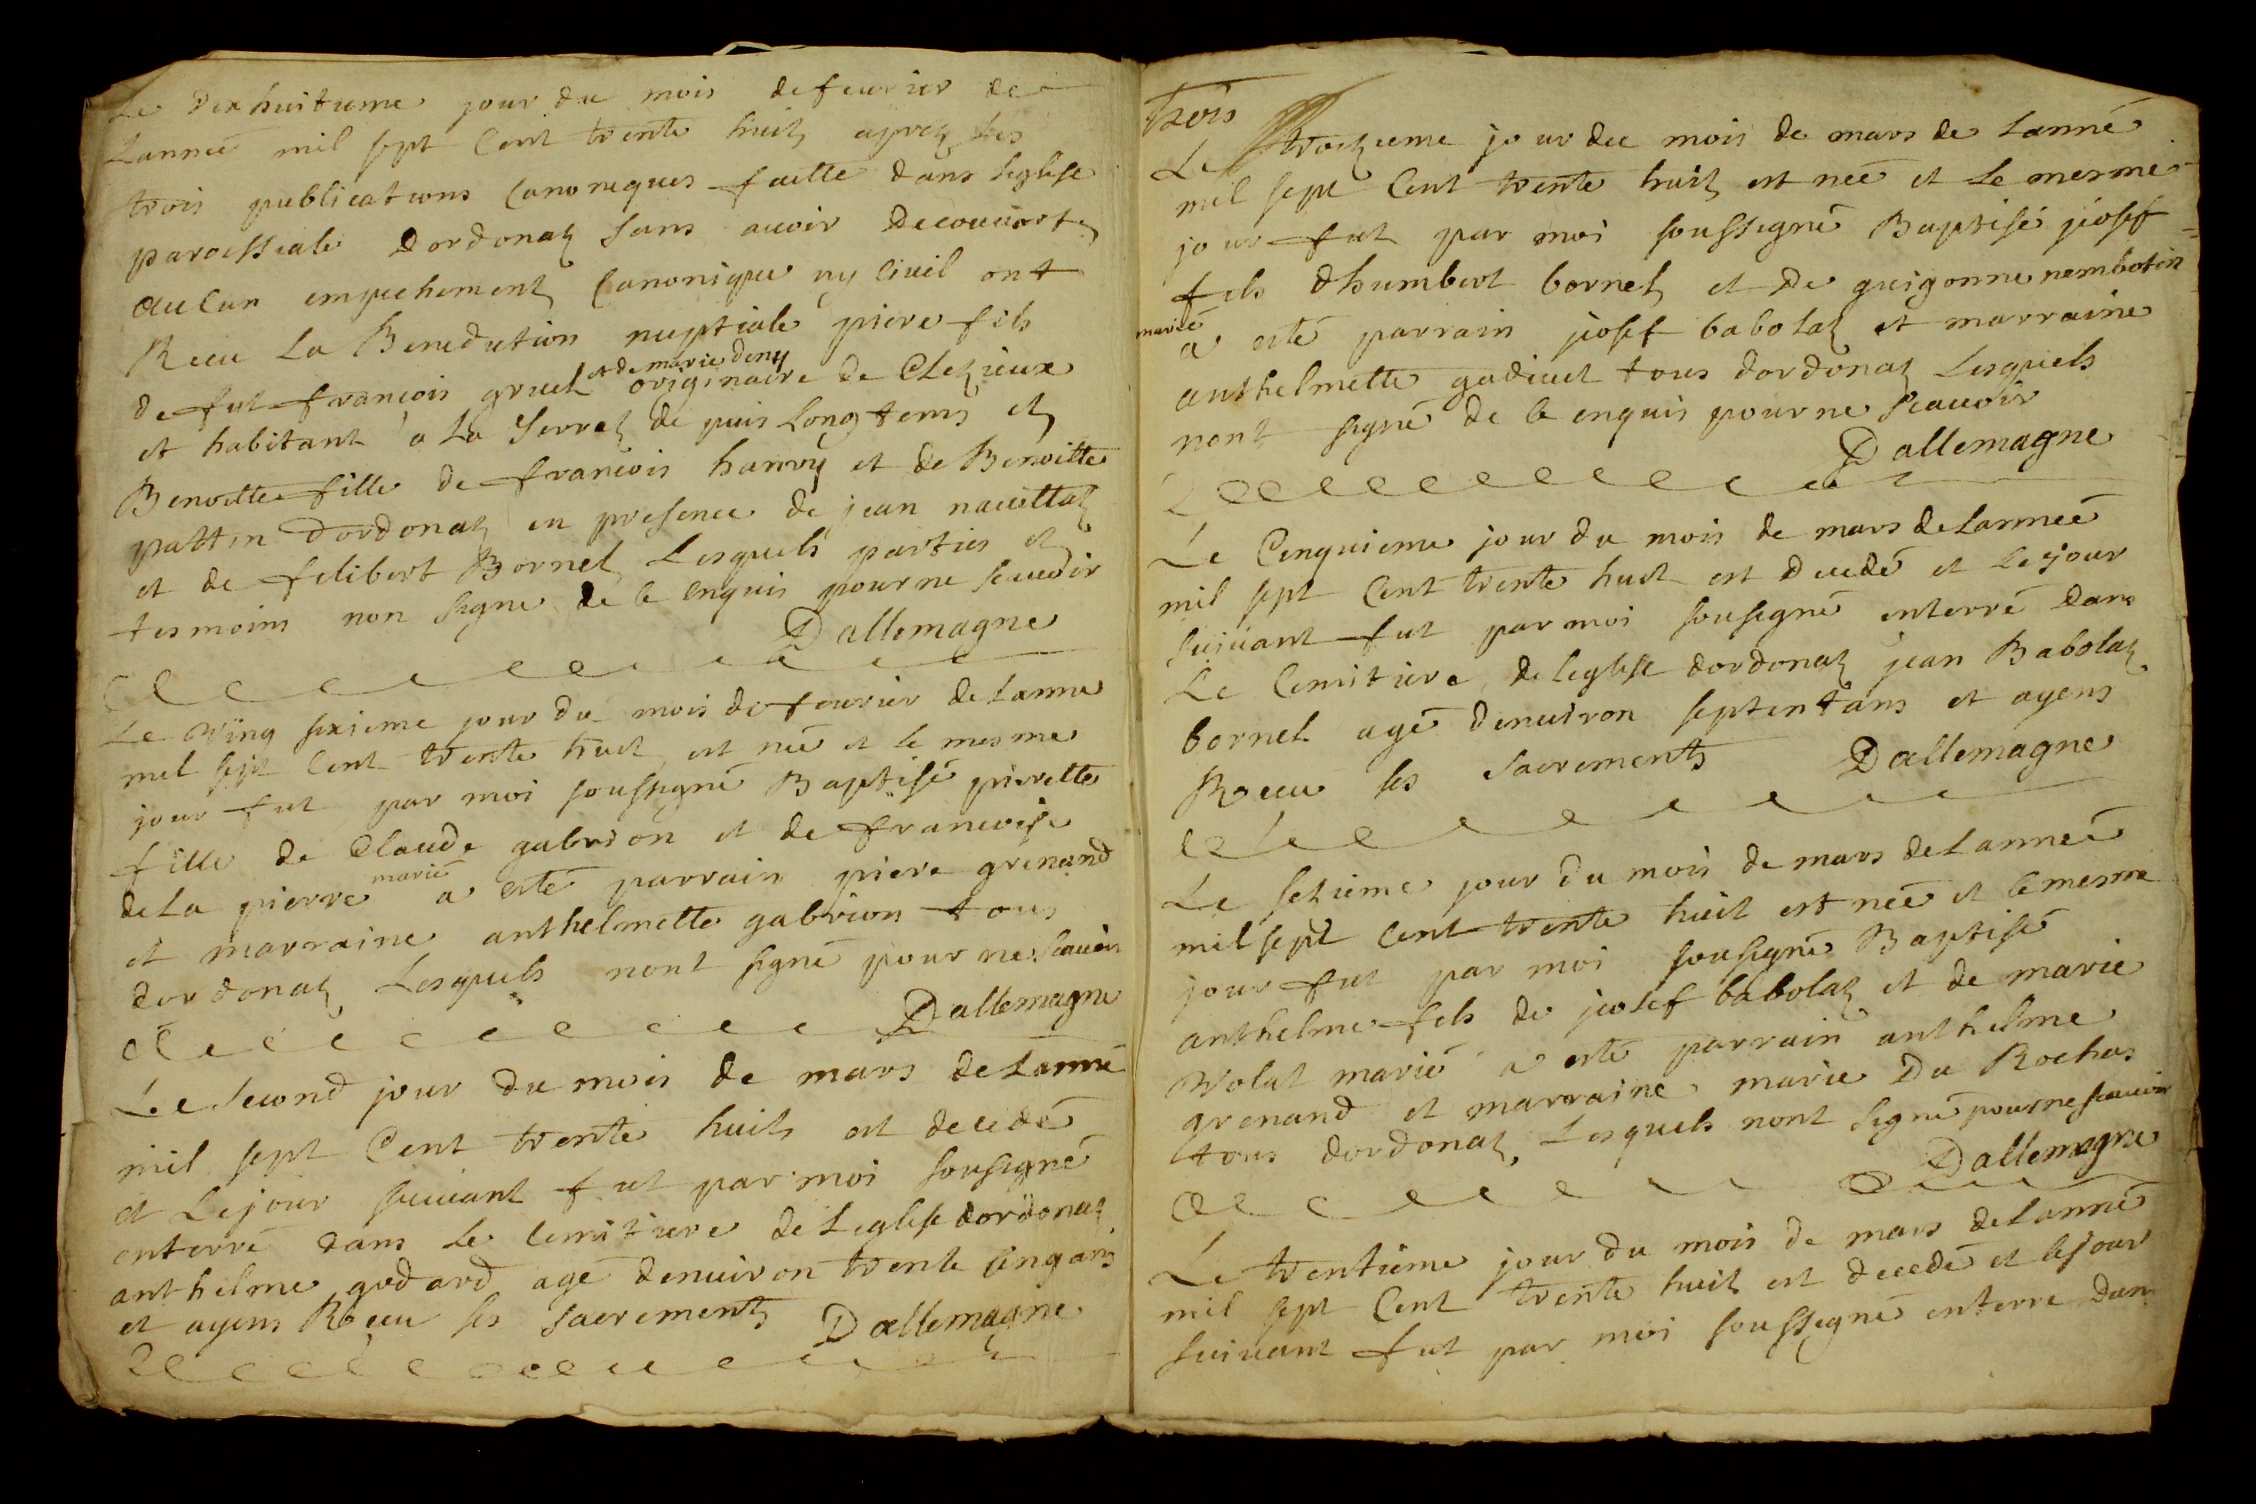 Le dixhuitieme jour du mois de feurier de
Lanneé mil sept Cent trente huit apres les
trois publications Canoniques faitte dans leglise
paroissiale Dordonaz sans auoir decouuert
aucun empechement Canonique ny Ciuil ont
Receu La Benediction nuptiale piere fils
de fut francois gruel et de marie deny originaire de Cleyzieux
et habitant a La Serraz de puis Longtems et
Benoitte fille de francois harvy et de Benoitte
pattin Dordonaz en presence de jean nauettaz
et de felibert Bornet Lesquels parties et
tesmoins non signe de ce enquis pour ne scauoir
Dallemagne
Le Ving sixieme jour du mois de feurier de Lanne
mil sept Cent trente huit est neé et le mesme
jour fut par moi soussigné Baptisé pierrette
fille de Claude gabrion et de francoise
de La pierre marié a esté parrain piere grenand
et marraine anthelmette gabrion tous
dordonaz Lesquels nont signé pour ne scauoir
Dallemagne
Le second jour du mois de mars de Lanné
mil sept Cent trente huit est decedé
et Le jour suiuant fut par moi sousigné
enterré dans Le Cemitiere de Leglise dordonaz
anthelme godard agé denuiron trente cinq ans
et ayens Receu ses sacrements Dallemagne
Trois
Le troizieme jour du mois de mars de Lanné
mil sept Cent trente huit est neé et Le mesme
jour fut par moi soussigné Baptisé josepf
fils dhumbert bornet et De guigonne nembotin
marié
a esté parrain josepf babolaz et marraine
anthelmette gadiuet tous dordonaz Lesquels
nont signé de ce enquis pour ne scauoir
Dallemagne
Le Cinquieme jour du mois de mars de Lanneé
mil sept Cent trente huit est decedé et Le jour
suiuant fut par moi sousigné enterré dans
Le Cemitiere de leglise dordonaz jean Babolaz
bornet agé denuiron septent ans et ayens
Receu ses sacrements Dallemagne
Le sezieme jour du mois de mars de Lanneé
mil sept Cent trente huit est neé et le mesme
jour fut par moi sousigné Baptisé
anthelme fils de josef babolaz et de marie
Wolat marié a esté parrain anthelme
grenand et marraine marie Du Rochas
tous dordonaz, Lesquels nont signé pour ne scauoir
Dallemagne
Le trentieme jour du mois de mars de Lanné
mil sept Cent trente huit est decedé et le jour
suiuant fut par moi soussigné enterre dans